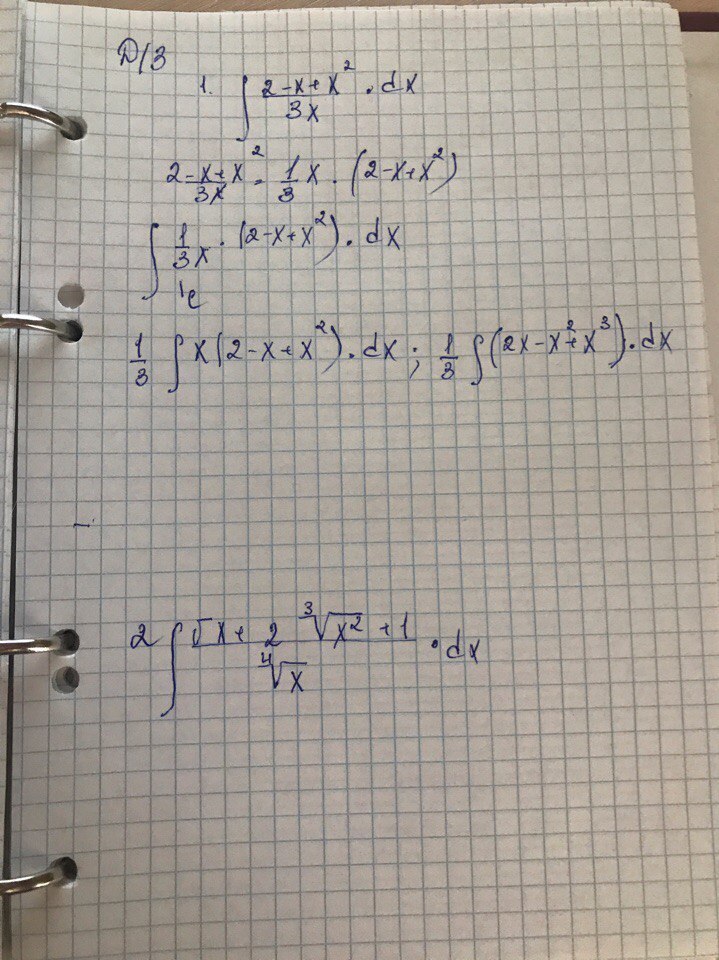 Д/З
1. ∫ (2-x+x²)/(3x) · dx
(2-x+x²)/(3x) = 1/3 x · (2-x+x²)
∫ 1/(3x) · (2-x+x²) · dx
1/3 ∫ x(2-x+x²) · dx ; 1/3 ∫ (2x-x²+x³) · dx
2 ∫ (√x + 2 ∛(x²) + 1)/(∜x) · dx